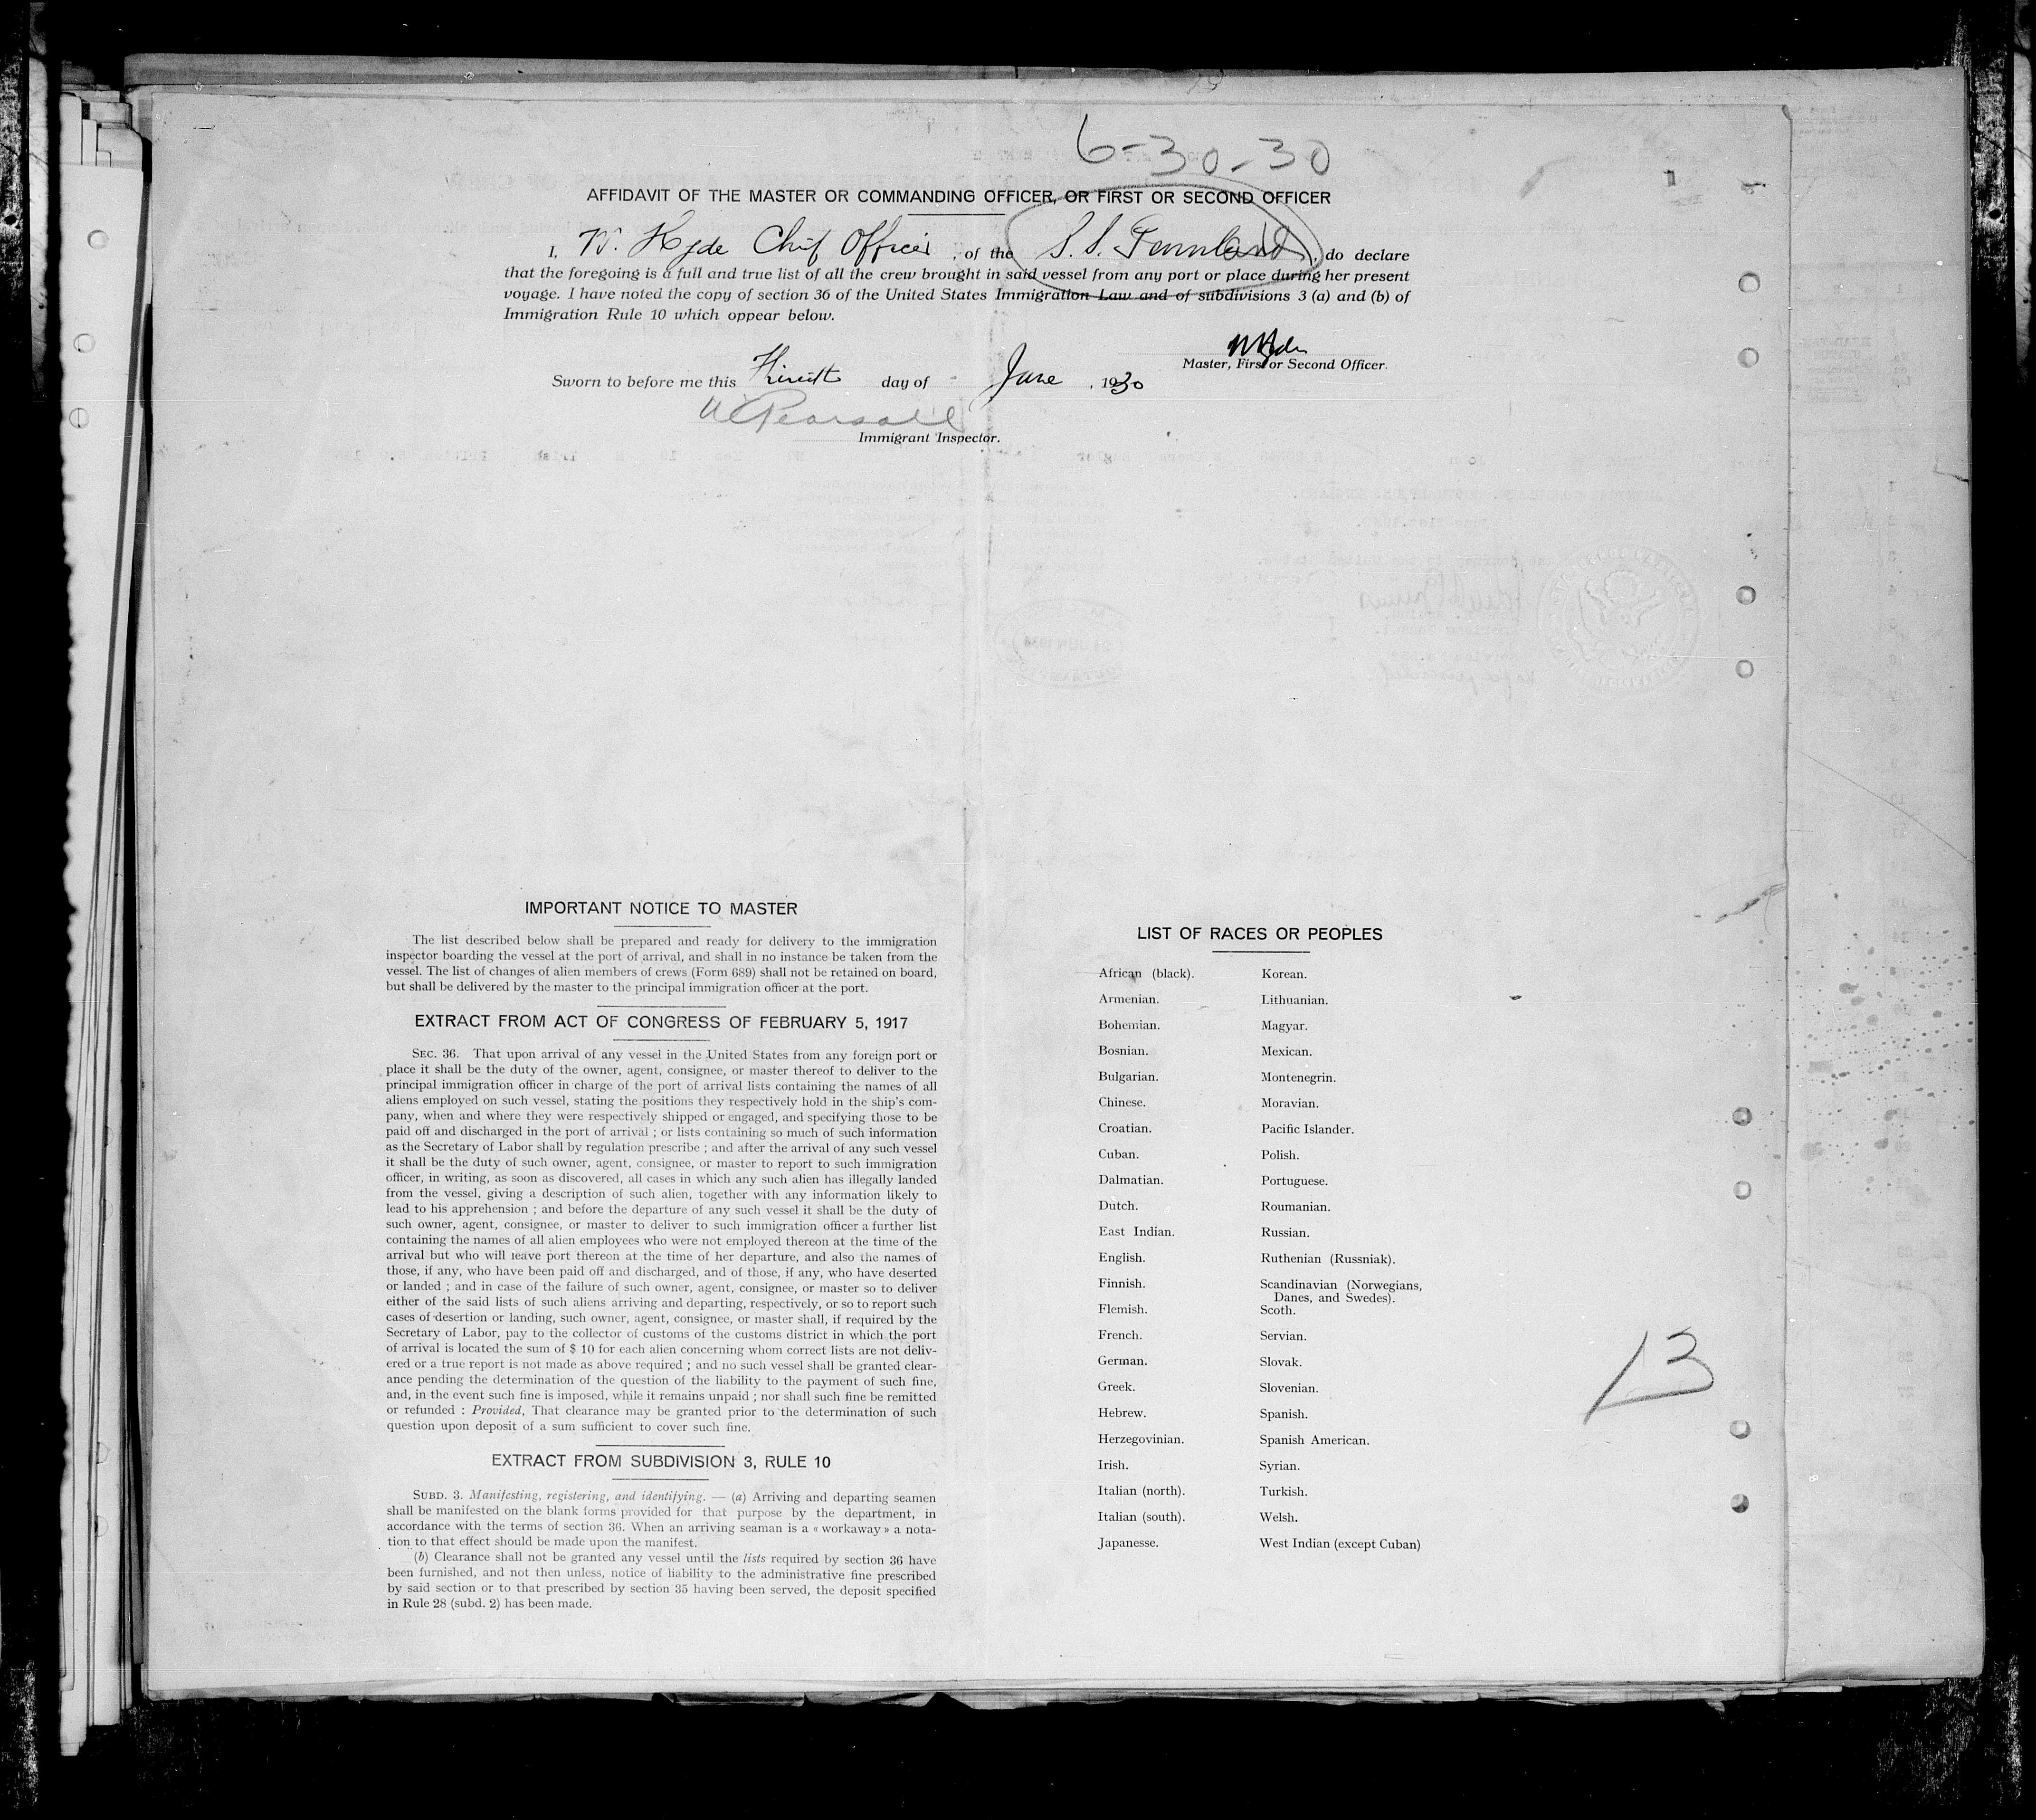 6-30-30
AFFIDAVIT OF THE MASTER OR COMMANDING OFFICER, OR FIRST OR SECOND OFFICER
I, W. Hyde Chief Officer, of the S.S. Pennland, do declare
that the foregoing is a full and true list of all the crew brought in said vessel from any port or place during her present
voyage. I have noted the copy of section 36 of the United States Immigration Law and of subdivisions 3 (a) and (b) of
Immigration Rule 10 which oppear below.
WHyde
Master, First or Second Officer.
Sworn to before me this day of June, 1930
Pearsall
Immigrant Inspector.
IMPORTANT NOTICE TO MASTER
The list described below shall be prepared and ready for delivery to the immigration
inspector boarding the vessel at the port of arrival, and shall in no instance be taken from the
vessel. The list of changes of alien members of crews (Form 689) shall not be retained on board,
but shall be delivered by the master to the principal immigration officer at the port.
EXTRACT FROM ACT OF CONGRESS OF FEBRUARY 5, 1917
SEC. 36. That upon arrival of any vessel in the United States from any foreign port or
place it shall be the duty of the owner, agent, consignee, or master thereof to deliver to the
principal immigration officer in charge of the port of arrival lists containing the names of all
aliens employed on such vessel, stating the positions they respectively hold in the ship's com-
pany, when and where they were respectively shipped or engaged, and specifying those to be
paid off and discharged in the port of arrival ; or lists containing so much of such information
as the Secretary of Labor shall by regulation prescribe ; and after the arrival of any such vessel
it shall be the duty of such owner, agent, consignee, or master to report to such immigration
officer, in writing, as soon as discovered, all cases in which any such alien has illegally landed
from the vessel, giving a description of such alien, together with any information likely to
lead to his apprehension ; and before the departure of any such vessel it shall be the duty of
such owner, agent, consignee, or master to deliver to such immigration officer a further list
containing the names of all alien employees who were not employed thereon at the time of the
arrival but who will leave port thereon at the time of her departure, and also the names of
those, if any, who have been paid off and discharged, and of those, if any, who have deserted
or landed ; and in case of the failure of such owner, agent, consignee, or master so to deliver
either of the said lists of such aliens arriving and departing, respectively, or so to report such
cases of desertion or landing, such owner, agent, consignee, or master shall, if required by the
Secretary of Labor, pay to the collector of customs of the customs district in which the port
of arrival is located the sum of $ 10 for each alien concerning whom correct lists are not deliv-
ered or a true report is not made as above required ; and no such vessel shall be granted clear-
ance pending the determination of the question of the liability to the payment of such fine,
and, in the event such fine is imposed, while it remains unpaid ; nor shall such fine be remitted
or refunded : Provided, That clearance may be granted prior to the determination of such
question upon deposit of a sum sufficient to cover such fine.
EXTRACT FROM SUBDIVISION 3, RULE 10
SUBD. 3. Manifesting, registering, and identifying. — (a) Arriving and departing seamen
shall be manifested on the blank forms provided for that purpose by the department, in
accordance with the terms of section 36. When an arriving seaman is a « workaway » a nota-
tion to that effect should be made upon the manifest.
(b) Clearance shall not be granted any vessel until the lists required by section 36 have
been furnished, and not then unless, notice of liability to the administrative fine prescribed
by said section or to that prescribed by section 35 having been served, the deposit specified
in Rule 28 (subd. 2) has been made.
LIST OF RACES OR PEOPLES
African (black). Korean.
Armenian. Lithuanian.
Bohemian. Magyar.
Bosnian. Mexican.
Bulgarian. Montenegrin.
Chinese. Moravian.
Croatian. Pacific Islander.
Cuban. Polish.
Dalmatian. Portuguese.
Dutch. Roumanian.
East Indian. Russian.
English. Ruthenian (Russniak).
Finnish. Scandinavian (Norwegians,
Danes, and Swedes).
Flemish. Scoth.
French. Servian.
German. Slovak.
Greek. Slovenian.
Hebrew. Spanish.
Herzegovinian. Spanish American.
Irish. Syrian.
Italian (north). Turkish.
Italian (south). Welsh.
Japanesse. West Indian (except Cuban)
13